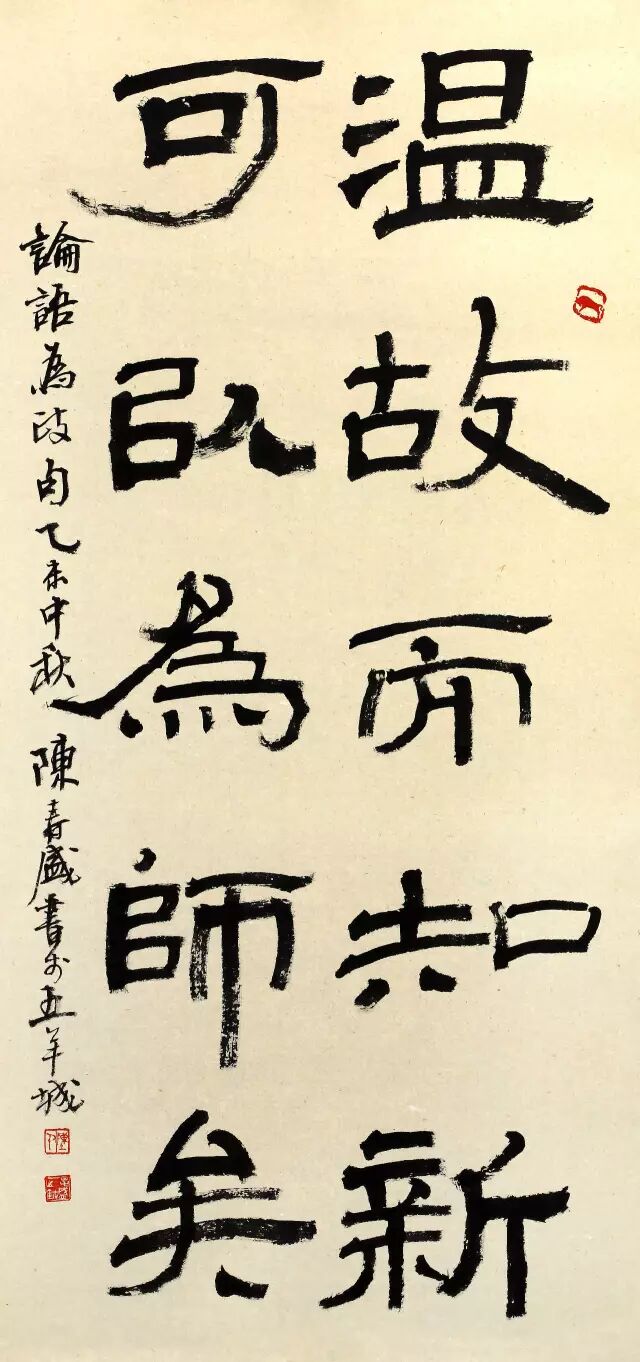 温故而知新
可以為師矣
論語為政句乙未中秋陳壽盛書於五羊城